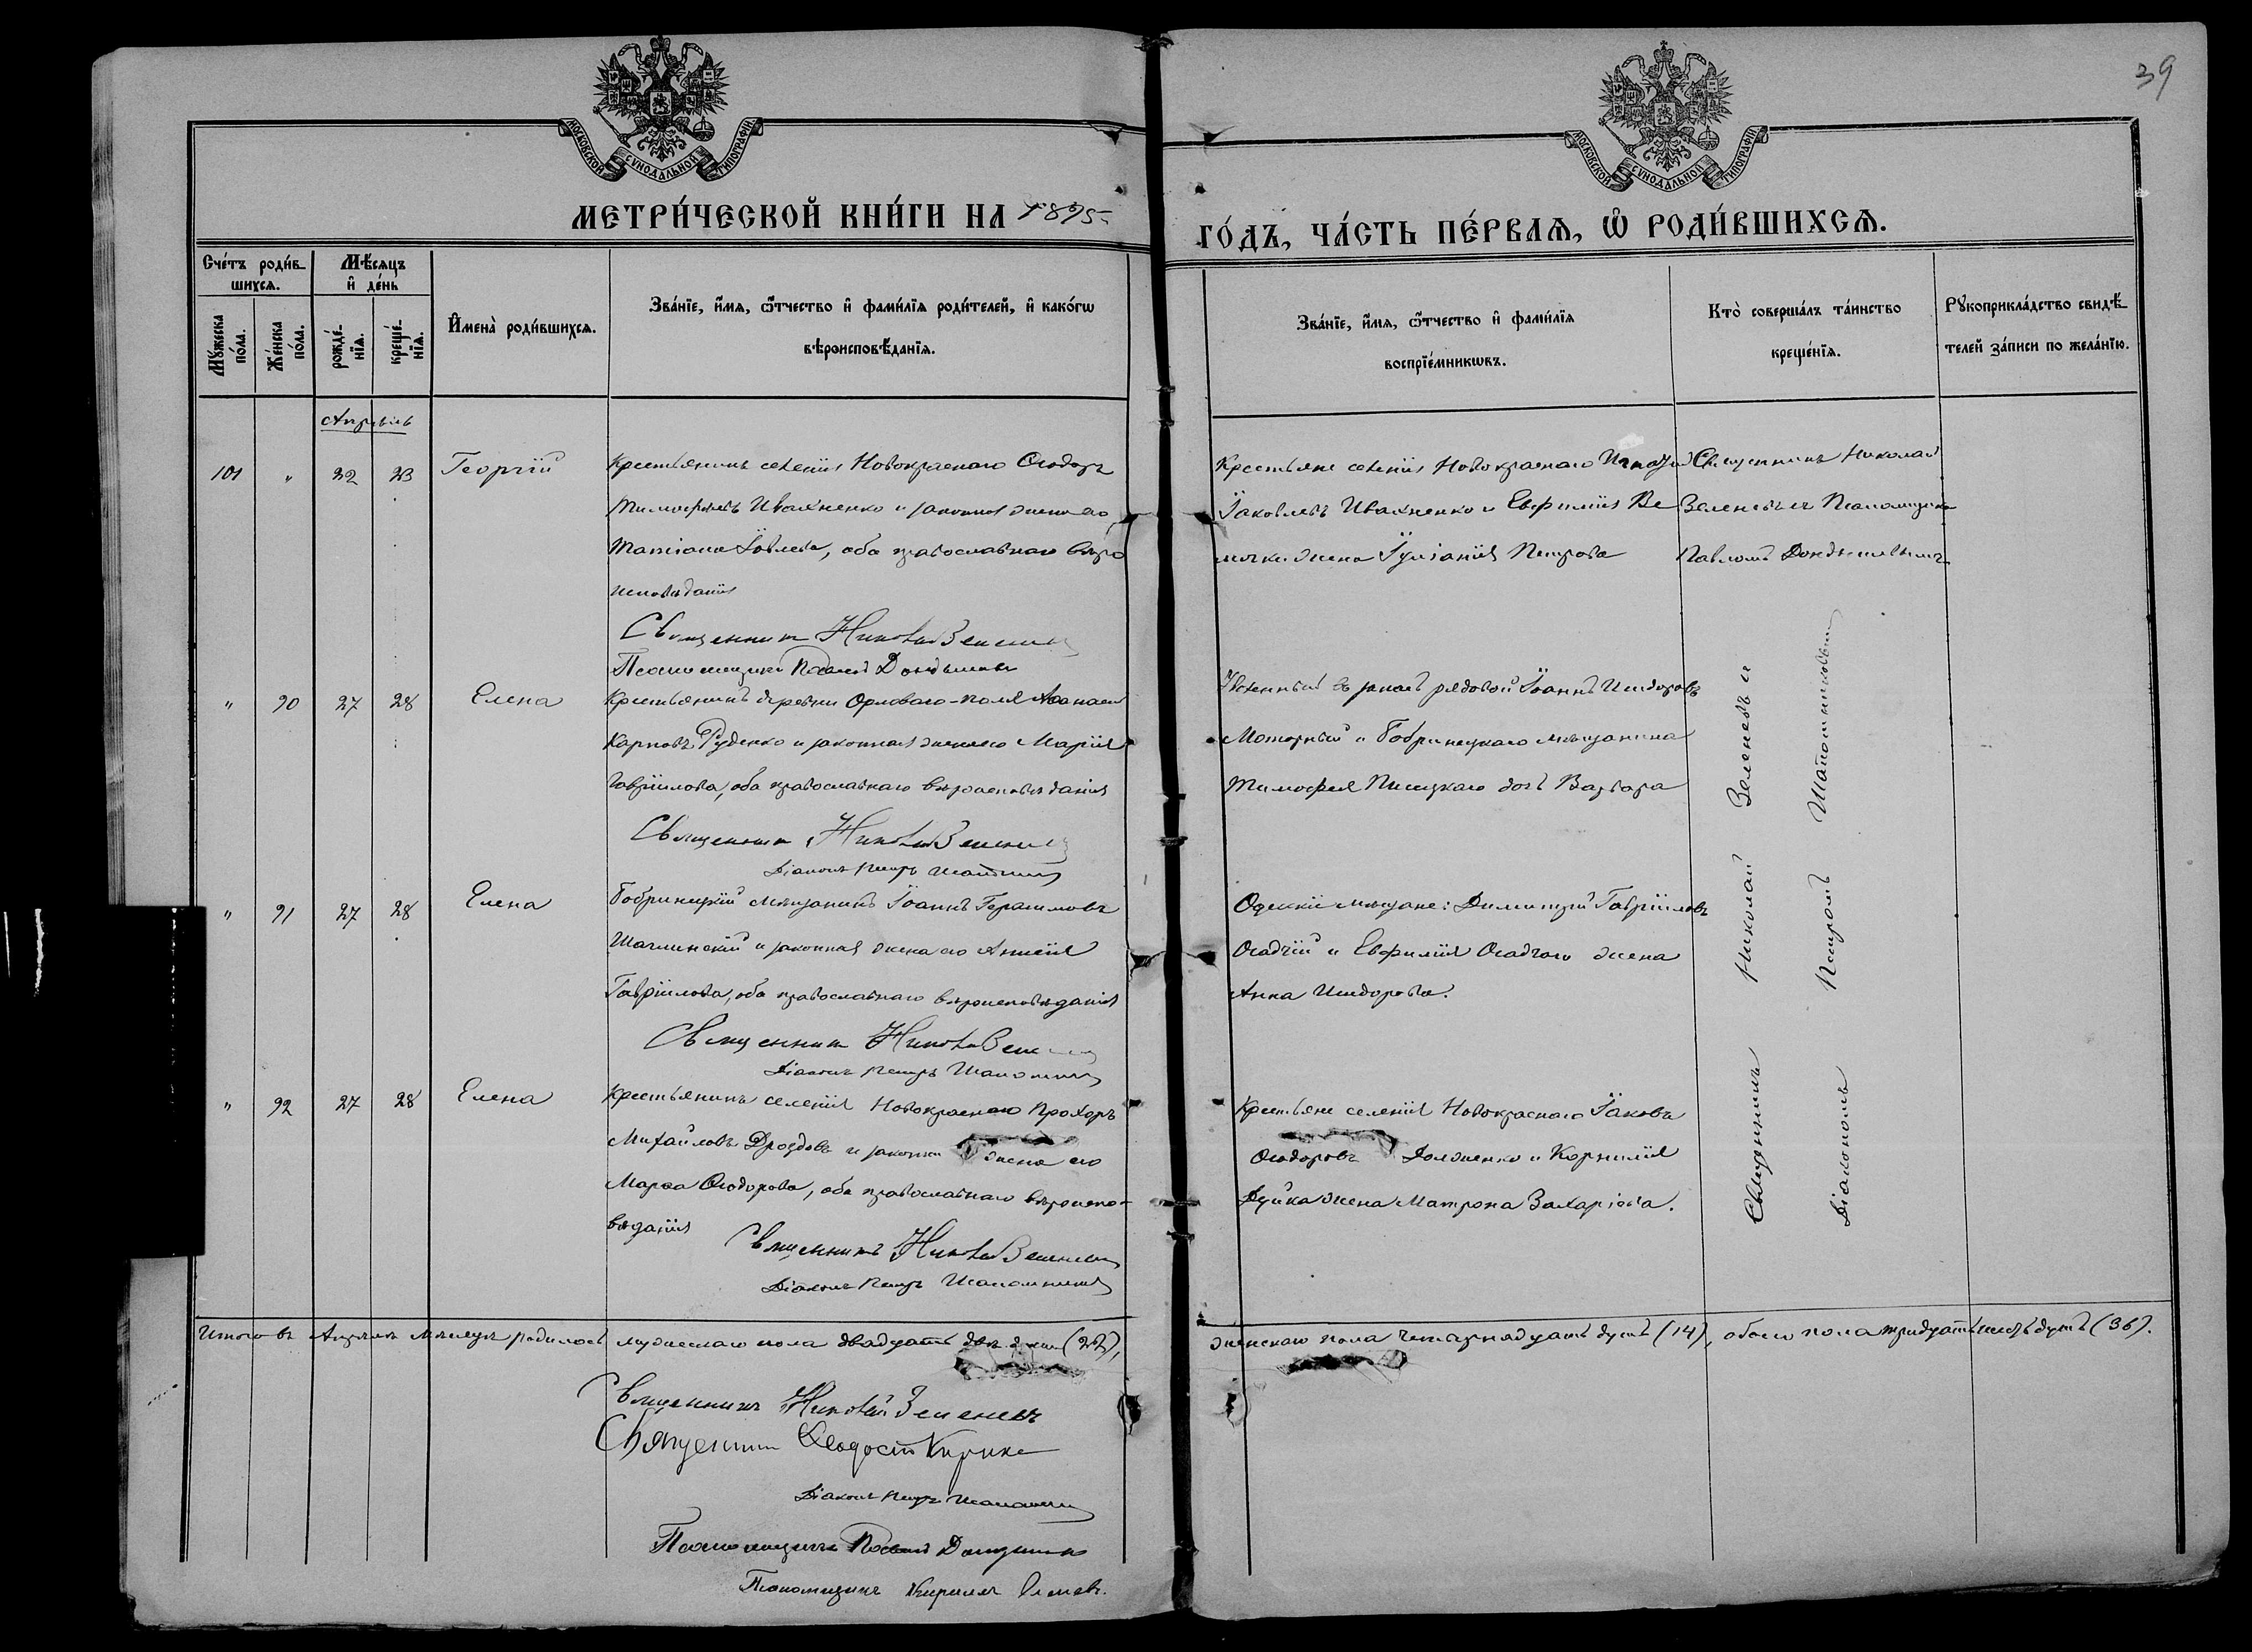 39
МОСКОВСКОЙ СѴНОДАЛЬНОЙ ТИПОГРАФІИ
МОСКОВСКОЙ СѴНОДАЛЬНОЙ ТИПОГРАФІИ
МЕТРИ́ЧЕСКОЙ КНИ́ГИ НА 1895
ГО́ДЪ, ЧА́СТЬ ПЕ́РВАѦ, Ѡ҆ РОДИ́ВШИХСѦ.
Сче́тъ роди́в-
шихсѧ.
Мѣ́сѧцъ
и҆ де́нь
Мꙋ́жеска
по́ла.
Же́нска
по́ла.
рожде́-
нїѧ.
креще́-
нїѧ.
И҆мена̀ роди́вшихсѧ.
Зва́нїе, и҆́мѧ, ѻ҆́тчество и҆ фами́лїѧ роди́телей, и҆ како́гѡ
вѣроисповѣ́данїѧ.
Зва́нїе, и҆́мѧ, ѻ҆́тчество и҆ фами́лїѧ
воспрїе́мникѡвъ.
Кто̀ соверша́лъ та́инство
креще́нїѧ.
Рꙋкоприкла́дство свидѣ́-
телей за́писи по жела́нїю.
Апрѣль
101 " 22 23 Георгій
Крестьянинъ селенія Новокраснаго Ѳеодоръ
Тимофеевъ Ивахненко и законная жена его
Татіана Іовлева, оба православнаго вѣро
исповѣданія
Священникъ Николай Зеленевъ
Псаломщикъ Павелъ
Крестьяне селенія Новокраснаго Игнатій
Іаковлевъ Ивахненко и Евфимія Ве
жена Іуліанія Петрова
Священникъ Николай
Зеленевъ съ Псаломщикомъ
Павломъ
" 90 27 28 Елена
Крестьянинъ деревни Орловаго-поля Аѳанасій
Карповъ Руденко и законная жена его Марія
Гавріилова, оба православнаго вѣроисповѣданія
Священникъ Николай Зеленевъ
Діаконъ Петръ
Уволенный въ запасъ рядовой Іоаннъ Исидоровъ
Моторный и Бобринецкаго мѣщанина
Тимофея Писецкаго дочь Варвара
" 91 27 28 Елена
Бобринецкій мѣщанинъ Іоаннъ Герасимовъ
и законная жена его Анисія
Гавріилова, оба православнаго вѣроисповѣданія
Священникъ Николай Зеленевъ
Діаконъ Петръ
Одескіе мѣщане: Димитрій Гавріиловъ
Осадчій и Евфимія Осадчаго жена
Анна Исидорова.
" 92 27 28 Елена
Крестьянинъ селенія Новокраснаго Прохоръ
Михайловъ Дроздовъ и законная жена его
Марѳа Ѳеодорова, оба православнаго вѣроиспо-
вѣданія
Священникъ Николай Зеленевъ
Діаконъ Петръ
Крестьяне селенія Новокраснаго Іаковъ
Ѳеодоровъ Долженко и Корнилія
жена Матрона Захаріева.
Священникъ Николай Зеленевъ и
Діакономъ Петромъ
Итого въ Апрѣлѣ мѣсяцѣ родилось мужескаго пола двадцать двѣ души (22),
женскаго пола четырнадцать душъ (14), обоего пола тридцать шесть душъ (36).
Священникъ Николай Зеленевъ
Священникъ Ѳеодосій
Діаконъ Петръ
Псаломщикъ Павелъ
Псаломщикъ Кириллъ